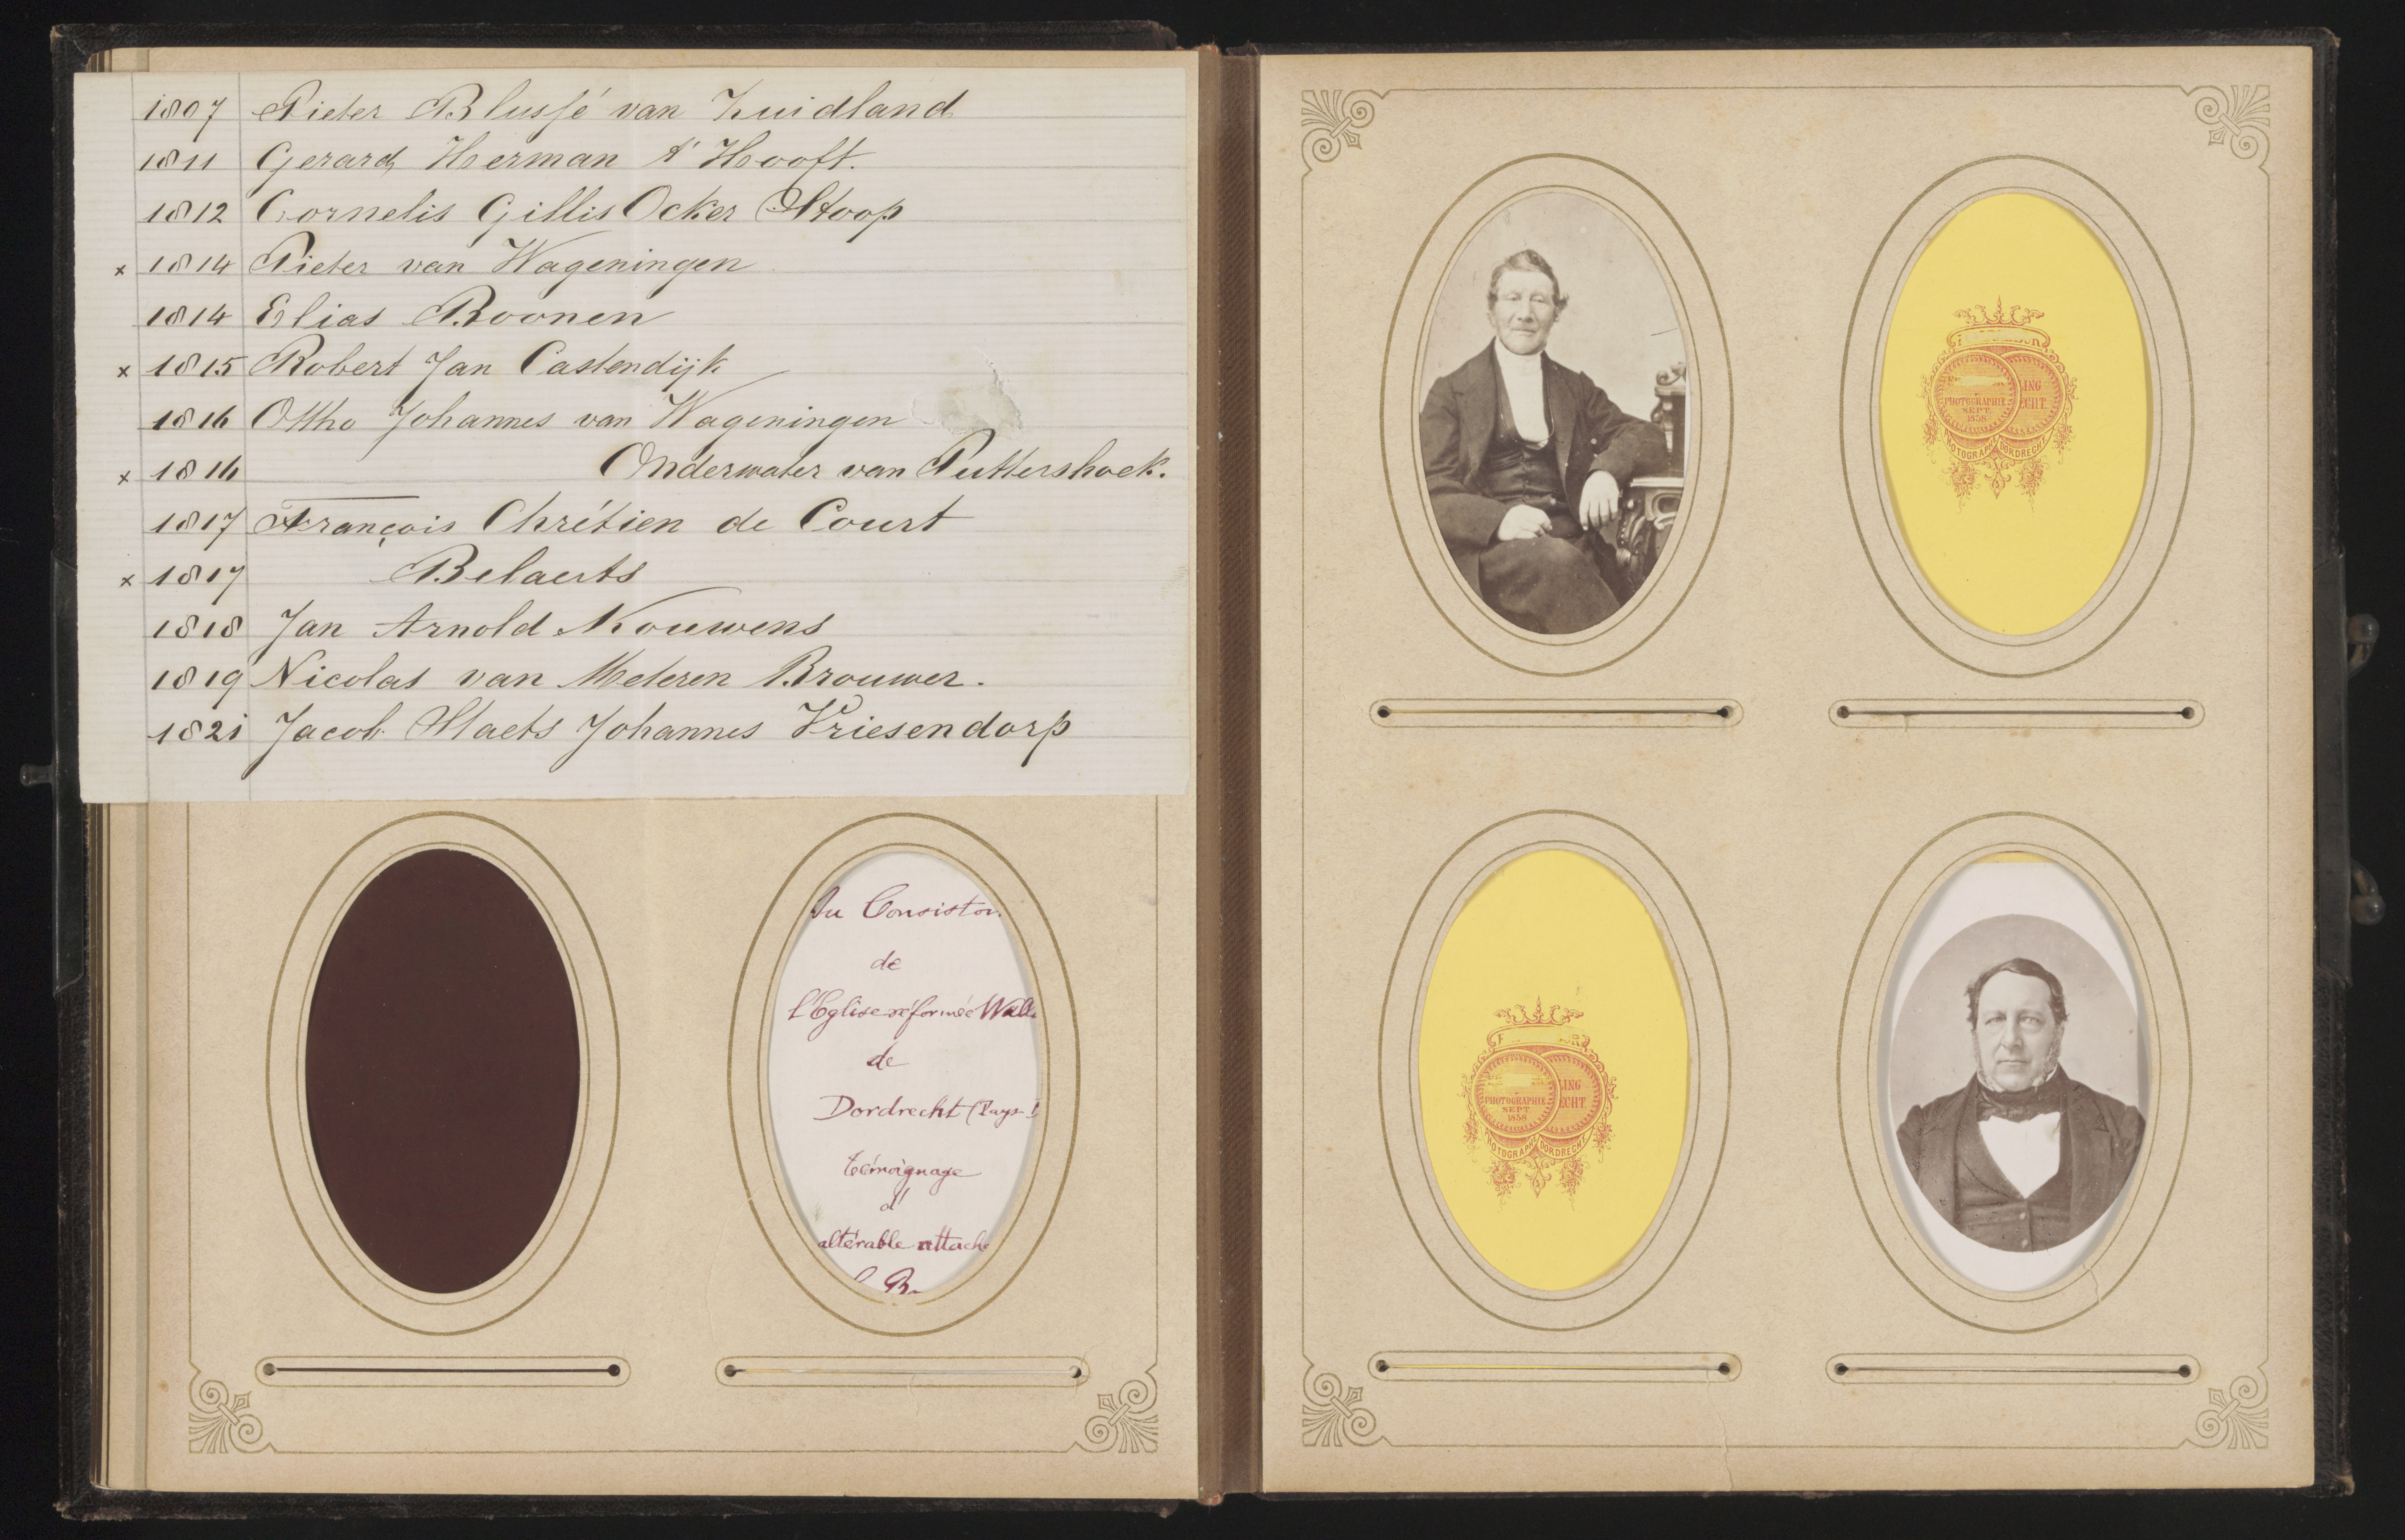 1807 Pieter Blussé van Zuidland
1811 Gerard Herman 't Hooft.
1812 Cornelis Gillis Ocker Stoop
x 1814 Pieter van Wageningen
1814 Elias Boonen
x 1815 Robert Jan Castendijk
1816 Ottho Johannes van Wageningen
x 1816 Onderwater van Puttershoek.
1817 François Chrétien de Court
x 1817 Belaerts
1818 Jan Arnold Kouwens
1819 Nicolas van Meteren Brouwer.
1821 Jacob Staets Johannes Vriesendorp
Au Consistoi
de
l'Eglise réformée Wall
de
Dordrecht (Pays-
témoignage
d'
altérable attache
B
ING
PHOTOGRAPHIE ECHT
SEPT.
1858
DORDRECHT
ING
PHOTOGRAPHIE ECHT
SEPT.
1858
DORDRECHT